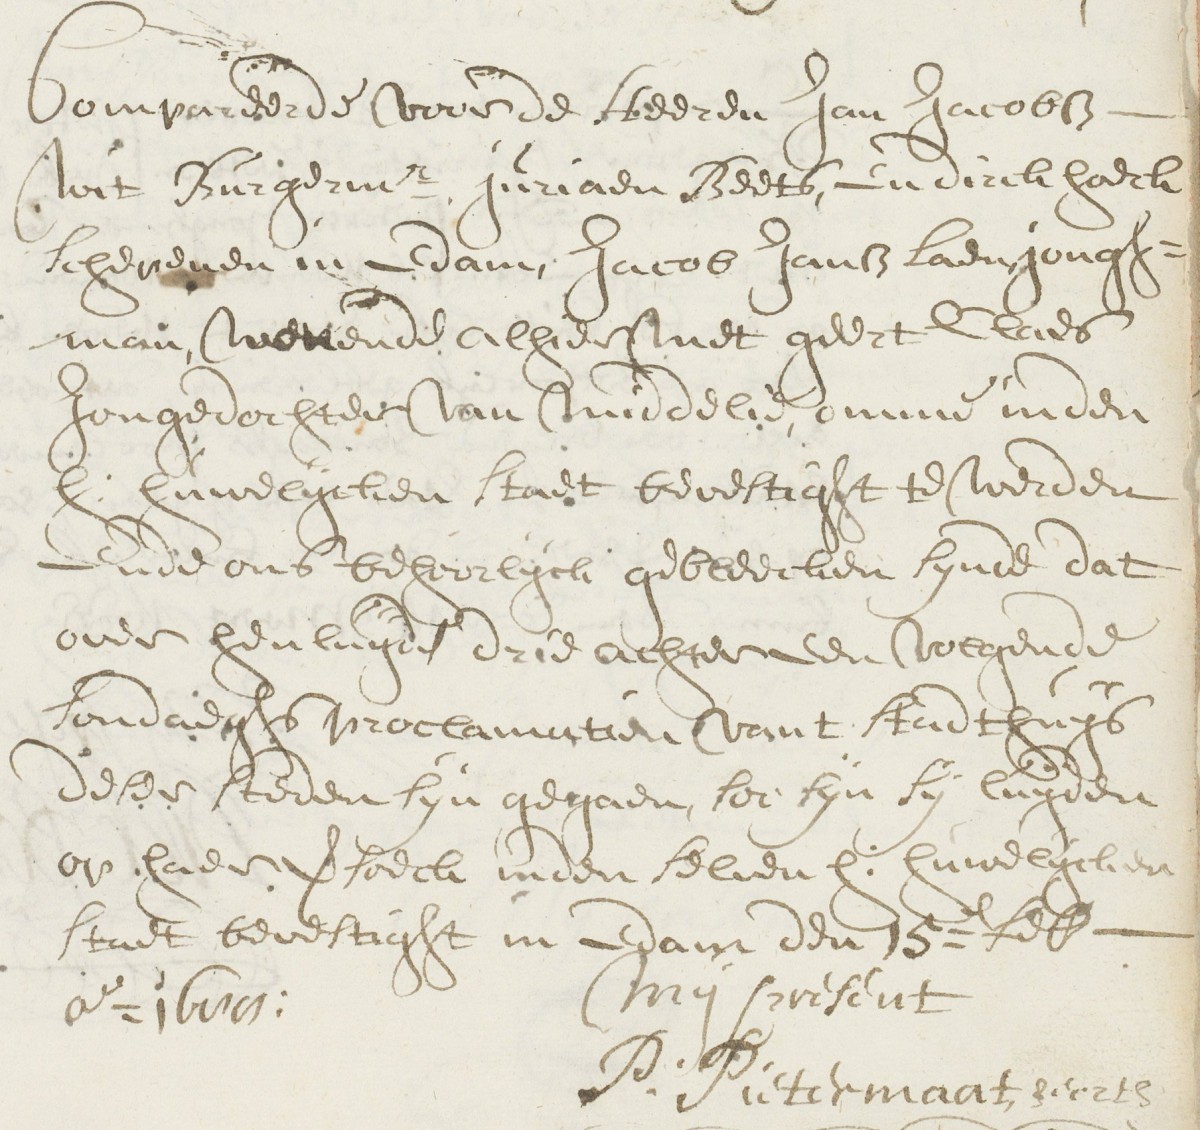 Compareerde voor de heeren Jan Jacobsz
Wit Burgermr, Juriaen Beets, En dirck
schepenen in Edam, Jacob Jansz Laen, jongh=
man, wonende alhier, met geert Claes
Jongedochter van Middelie, omme inden
h: huwelijcken staet bevesticht te werden
Ende ons behoorlijck gebleecken synde dat
over henluyden drie achter een volgende
sondaeghs proclamatien vant stadthuys
deser steden syn gegaen, soo syn sy luyden
op haer versoeck inden selven h: huwelijcken
staet bevesticht in Edam den 15en feb
ao=
Mij present
P. Pietermaat, secrts